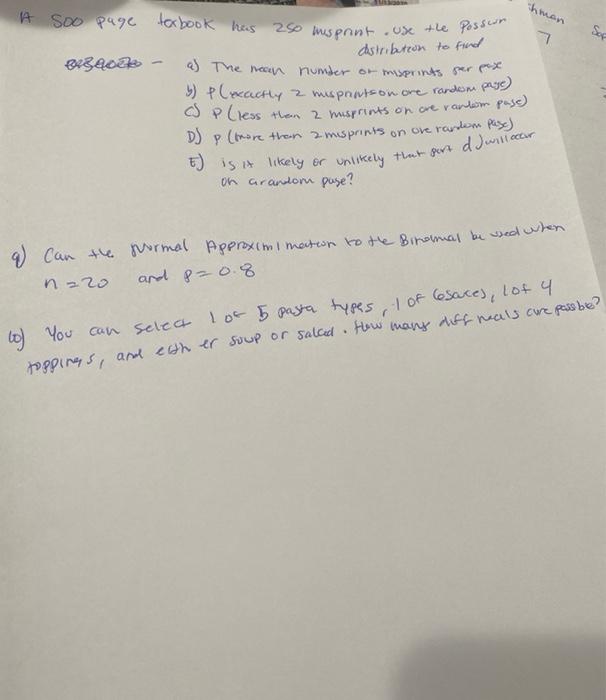 A 500 page texbook has 250 misprint. use the Possion
distribution to find
hman
7
- a) The mean number of misprints per page
b) P(exactly 2 misprints on one random page)
c) P (less then 2 misprints on one random page)
D) P (more then 2 misprints on one random page)
E) is it likely or unlikely that part d) will occur
on a random page?
9) Can the Normal Approximimation to the Binomial be used when
n = 20 and p = 0.8
10) You can select 1 of 5 pasta types, 1 of 6 sauces, 1 of 4
toppings, and eith er soup or salad. How many diff meals are possible?